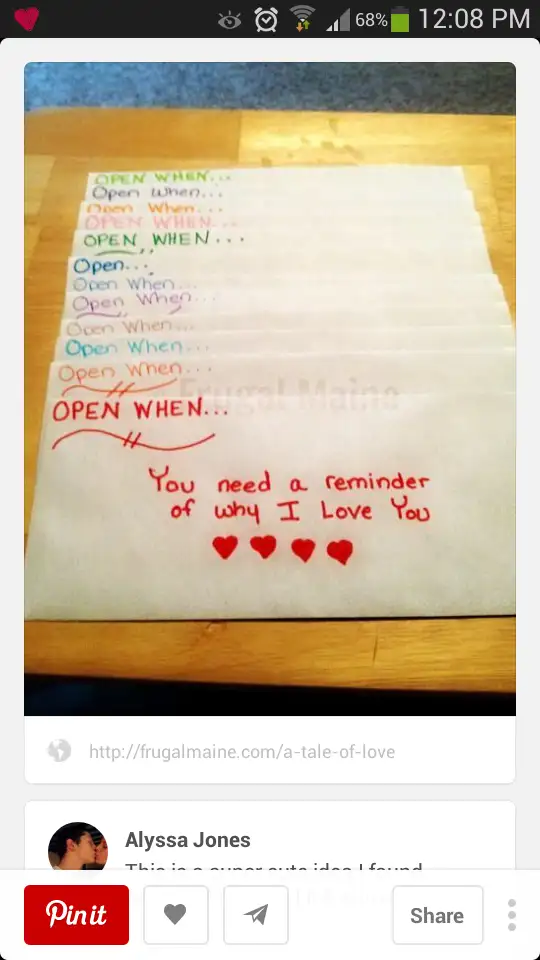 68% 12:08 PM
OPEN WHEN...
Open When...
Open When...
OPEN WHEN...
OPEN, WHEN...
Open...
Open When...
Open When...
Open When...
Open When...
Open When...
Frugal Maine
OPEN WHEN...
You need a reminder
of why I Love You
http://frugalmaine.com/a-tale-of-love
Alyssa Jones
This is a super cute idea I found
Pin it
Share